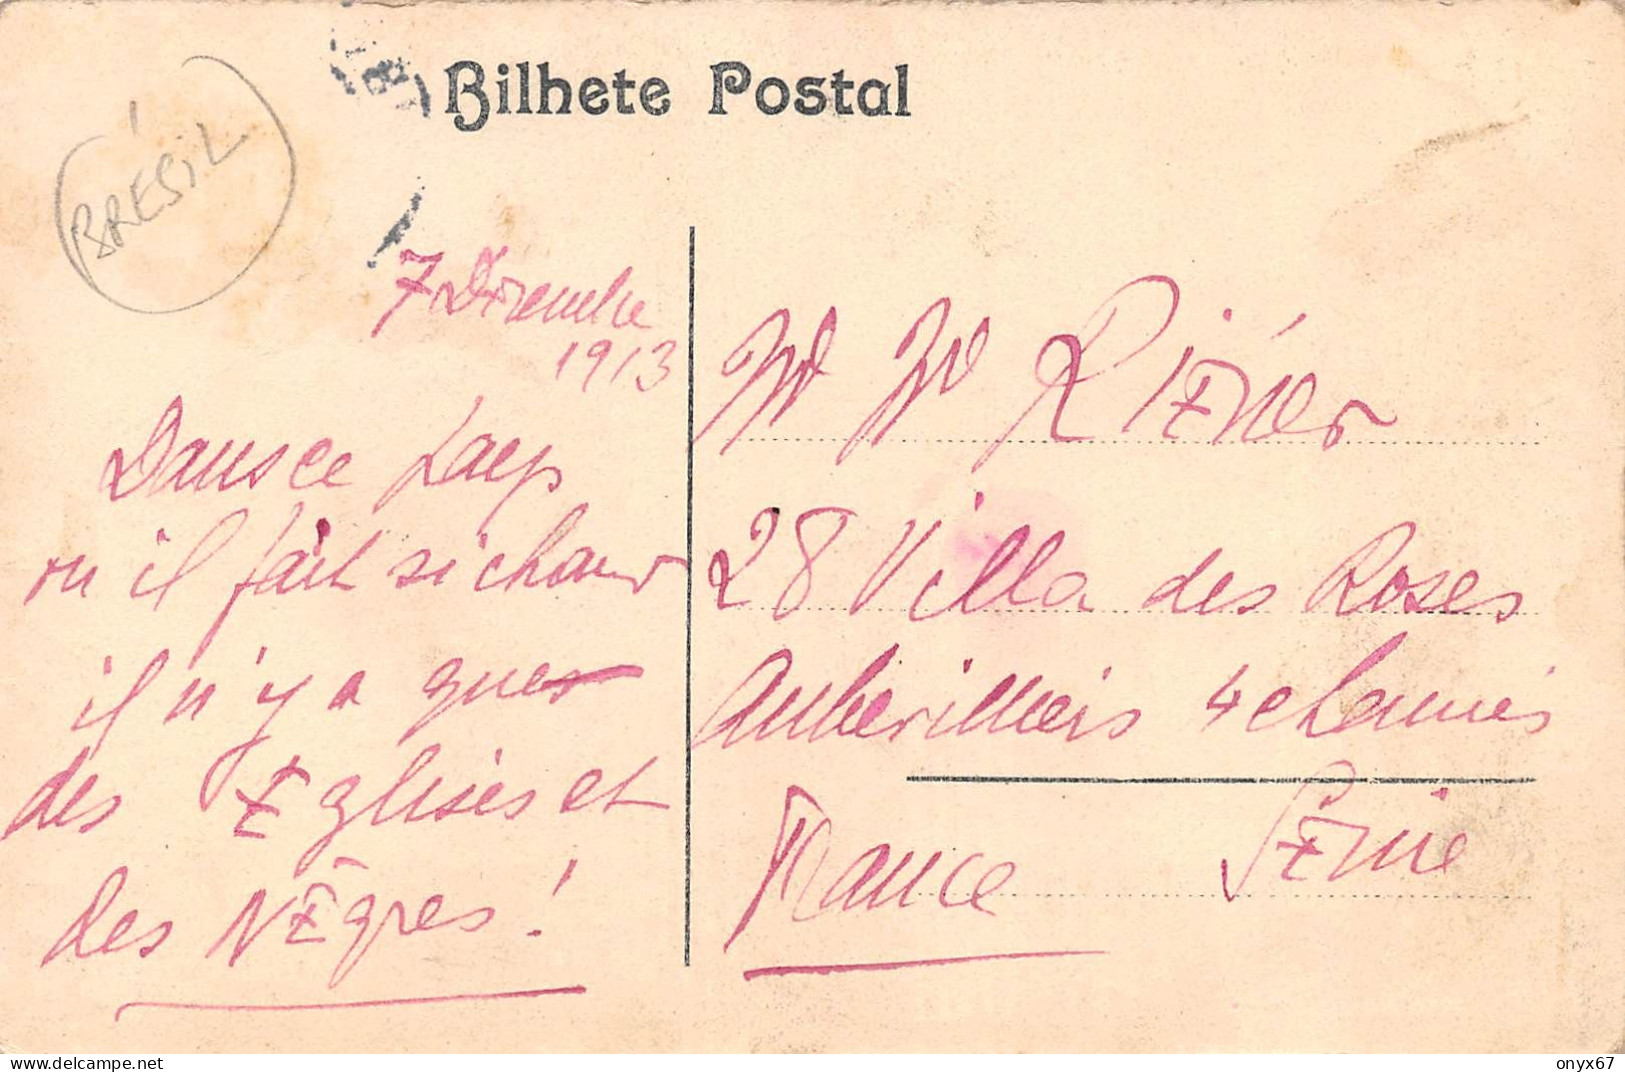 Bilhete Postal
BRÉSIL
7 Décembre
1913
Dans ce pays
ou il fait si chaud
il n'y a que
des Eglises et
des Nègres!
28 Villa des Roses
Aubervilliers 4 chemins
Seine
France
www.delcampe.net
onyx67